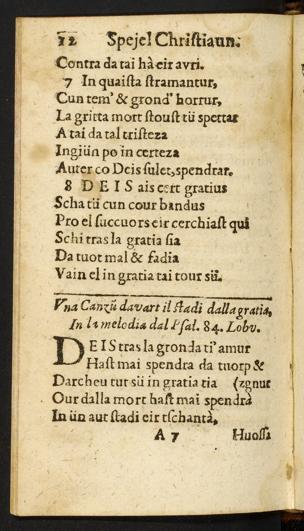 12 Spejel Christiaun.
Contra da tai hà eir avri.
7 In quaista stramantur,
Cun tem' & grond' horrur,
La gritta mort stoust tü spettar
A tai da tal tristeza
Ingiün po in certeza
Auter co Deis sulet, spendrar.
8 DEIS ais cert gratius
Scha tü cun cour bandus
Pro el succuors eir cerchiast qui
Schi tras la gratia sia
Da tuot mal & fadia
Vain el in gratia tai tour sü.
Vna Canzũ davart il stadi dalla gratia,
In la melodia dal Psal. 84. Lobv.
DEIS tras la gronda ti' amur
Hast mai spendra da tuorp &
Darcheu tut sü in gratia tia (zgnur
Our dalla mort hast mai spendrà
In ün aut stadi eir tschantà,
A 7 Huossa